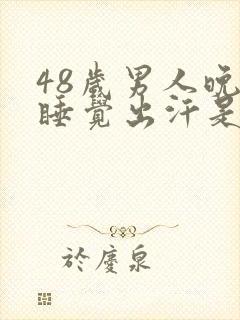 48歲男人晚
睡覺出汗是
於慶泉